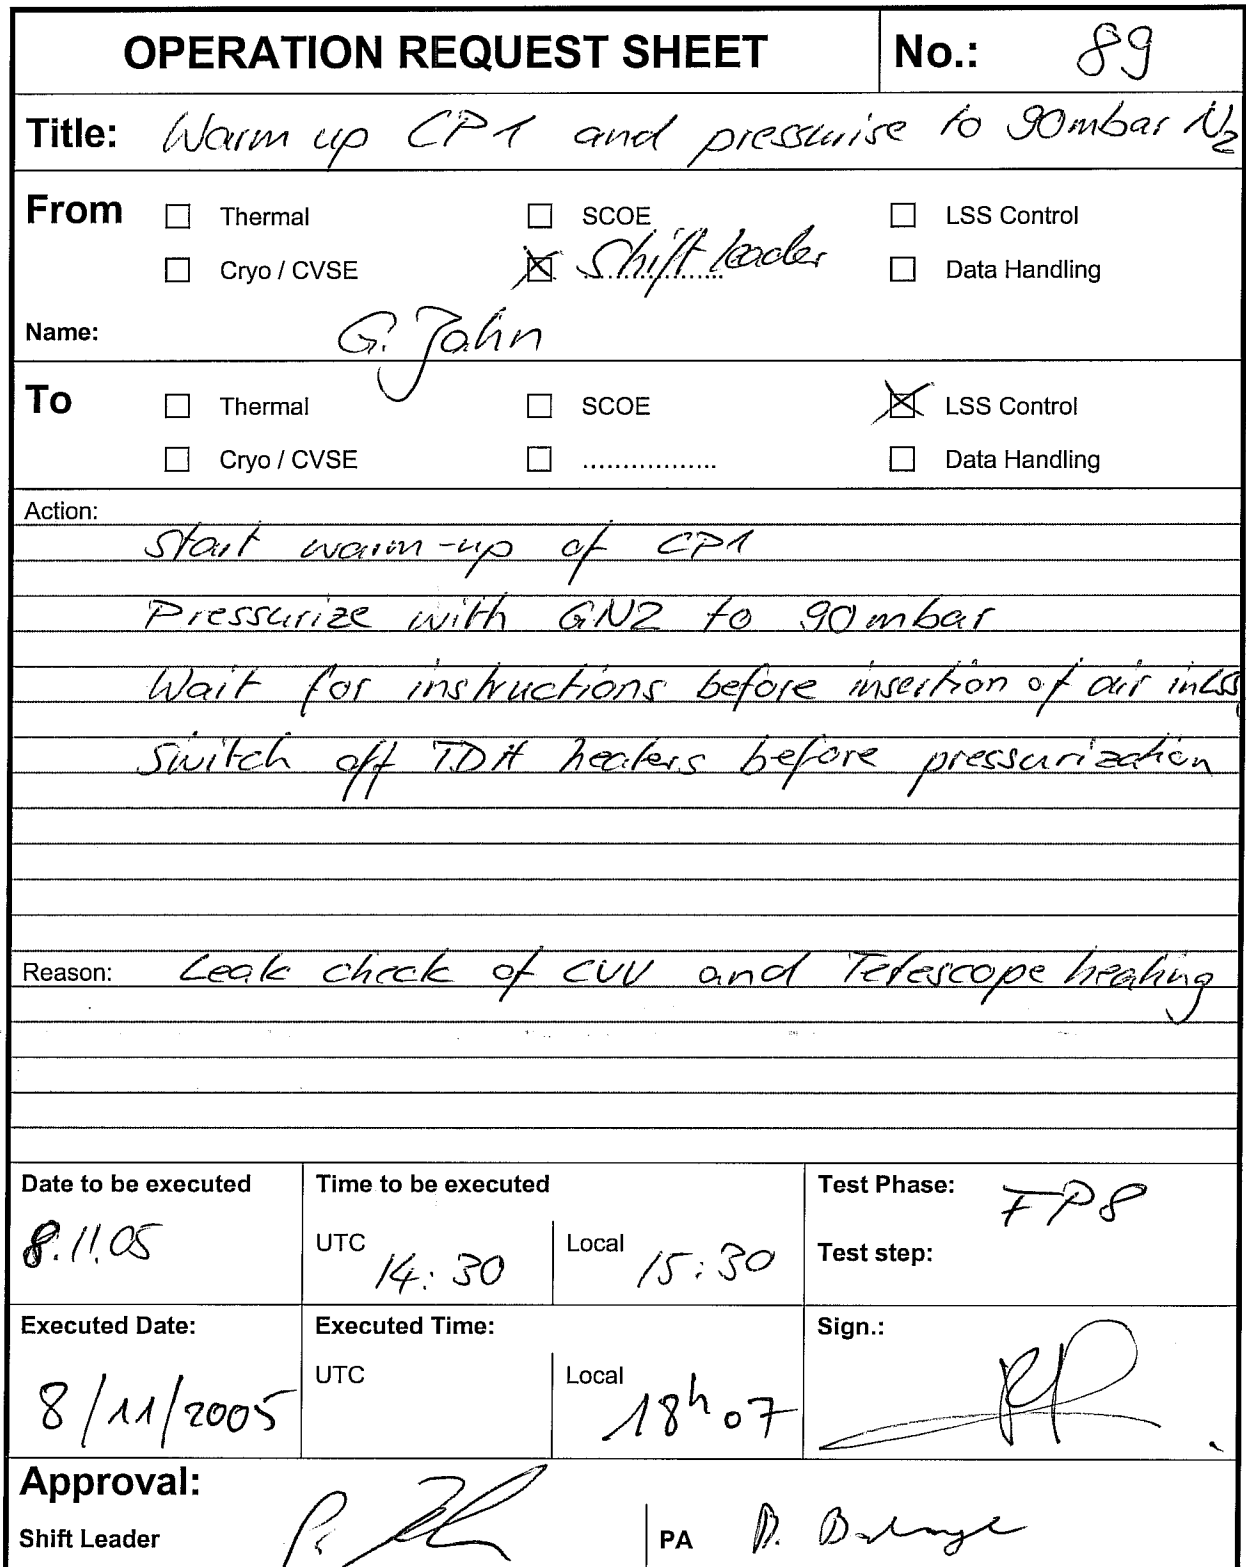 OPERATION REQUEST SHEET No.: 89
Title: Warm up CP1 and pressurise to 90mbar N2
From Thermal SCOE LSS Control
Cryo / CVSE Shift leader Data Handling
Name: G. Jahn
To Thermal SCOE LSS Control
Cryo / CVSE ................. Data Handling
Action:
Start warm-up of CP1
Pressurize with GN2 to 90 mbar
Wait for instructions before insertion of air in LSS
Switch off TDH heaters before pressurization
Reason: Leak check of CVV and Telescope heating
Date to be executed Time to be executed Test Phase: FP8
8.11.05 UTC 14:30 Local 15:30 Test step:
Executed Date: Executed Time: Sign.:
8/11/2005 UTC Local 18h07
Approval:
Shift Leader PA